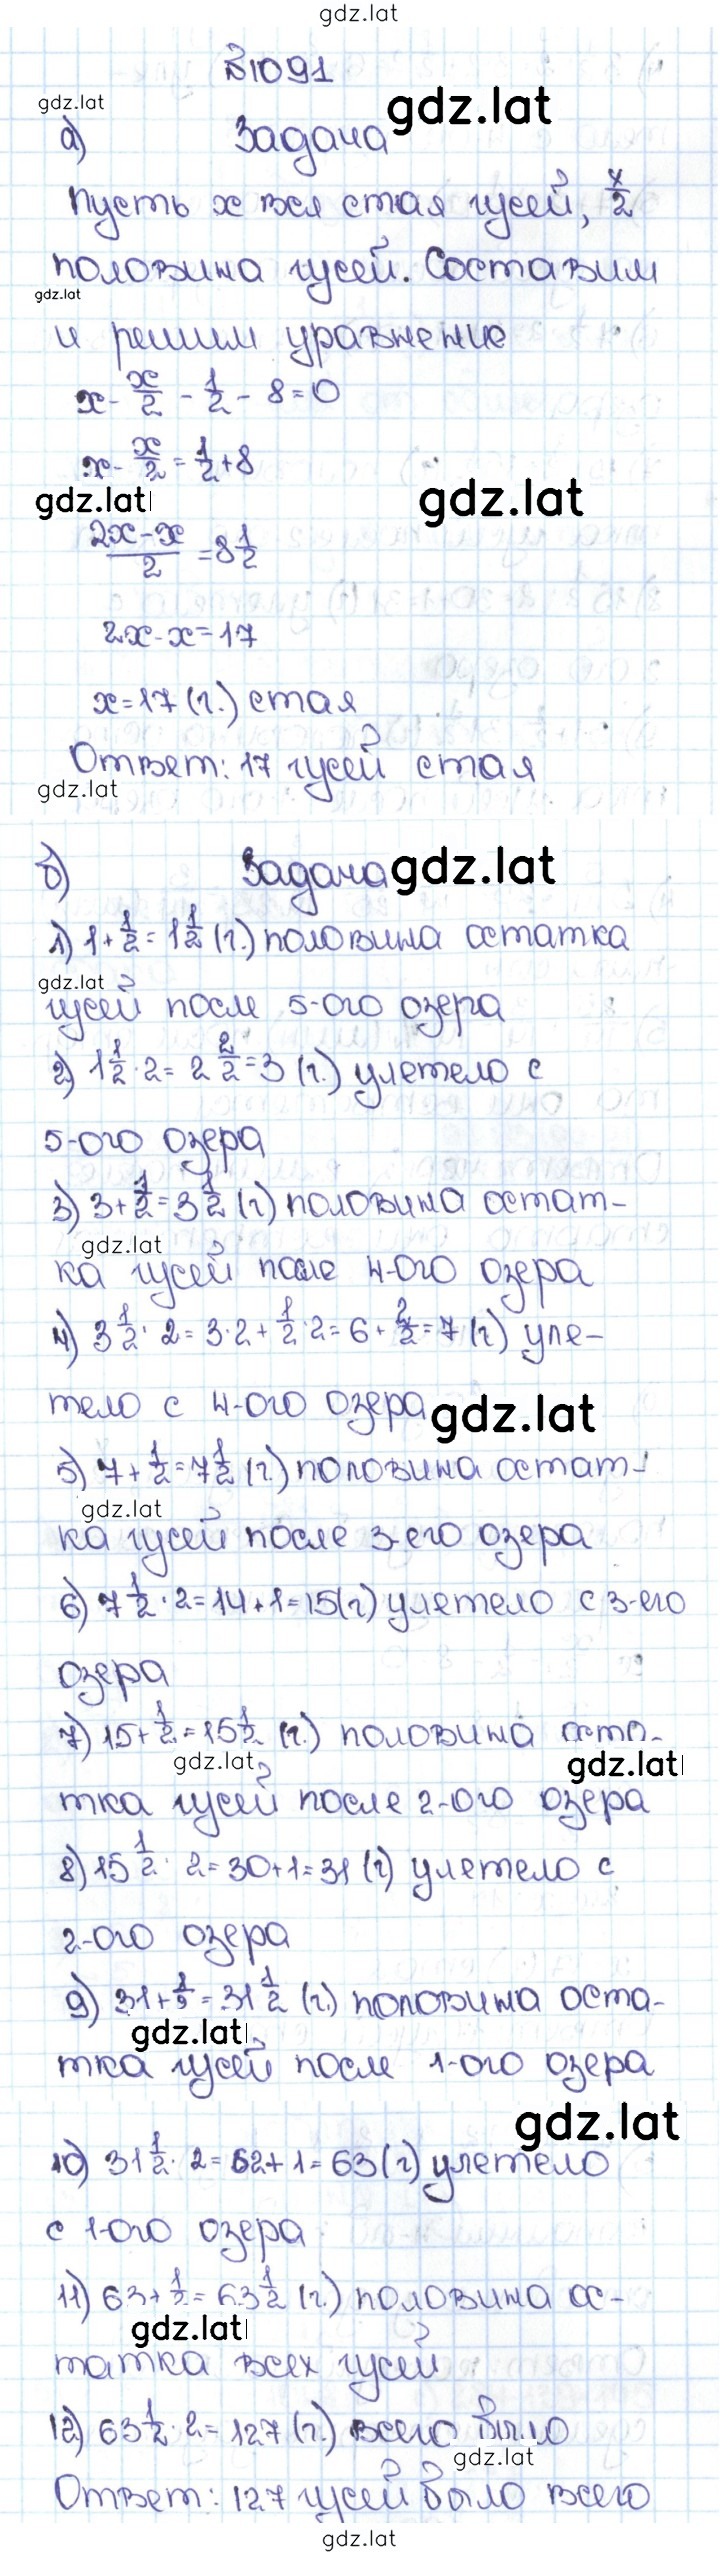 gdz.lat
№1091
gdz.lat
gdz.lat
а) Задача
Пусть x вся стая гусей, x/2
половина гусей. Составим
gdz.lat
и решим уравнение
x - x/2 - 1/2 - 8 = 0
x - x/2 = 1/2 + 8
gdz.lat
gdz.lat
(2x - x)/2 = 8 1/2
2x - x = 17
x = 17 (г.) стая
Ответ: 17 гусей стая
gdz.lat
б) Задача
gdz.lat
1) 1 + 1/2 = 1 1/2 (г.) половина остатка
gdz.lat
гусей после 5-ого озера
2) 1 1/2 · 2 = 2 2/2 = 3 (г.) улетело с
5-ого озера
3) 3 + 1/2 = 3 1/2 (г) половина остат-
gdz.lat
ка гусей после 4-ого озера
4) 3 1/2 · 2 = 3 · 2 + 1/2 · 2 = 6 + 2/2 = 7 (г) уле-
тело с 4-ого озера
gdz.lat
5) 7 + 1/2 = 7 1/2 (г.) половина остат-
gdz.lat
ка гусей после 3-его озера
6) 7 1/2 · 2 = 14 + 1 = 15 (г) улетело с 3-его
озера
7) 15 + 1/2 = 15 1/2 (г.) половина оста-
gdz.lat
gdz.lat
тка гусей после 2-ого озера
8) 15 1/2 · 2 = 30 + 1 = 31 (г) улетело с
2-ого озера
9) 31 + 1/2 = 31 1/2 (г.) половина оста-
gdz.lat
тка гусей после 1-ого озера
gdz.lat
10) 31 1/2 · 2 = 62 + 1 = 63 (г) улетело
с 1-ого озера
11) 63 + 1/2 = 63 1/2 (г.) половина ос-
gdz.lat
татка всех гусей
12) 63 1/2 · 2 = 127 (г.) всего было
gdz.lat
Ответ: 127 гусей было всего
gdz.lat